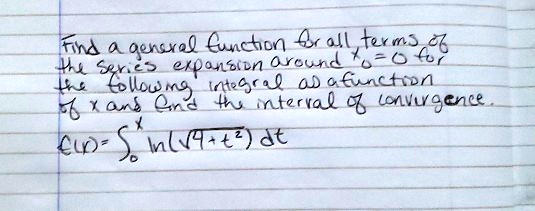 Find a general function for all terms of
the series expansion around x₀=0 for
the following integral as a function
of x and find the interval of convergence.
f(x)= ∫₀ˣ ln(√9+t²) dt